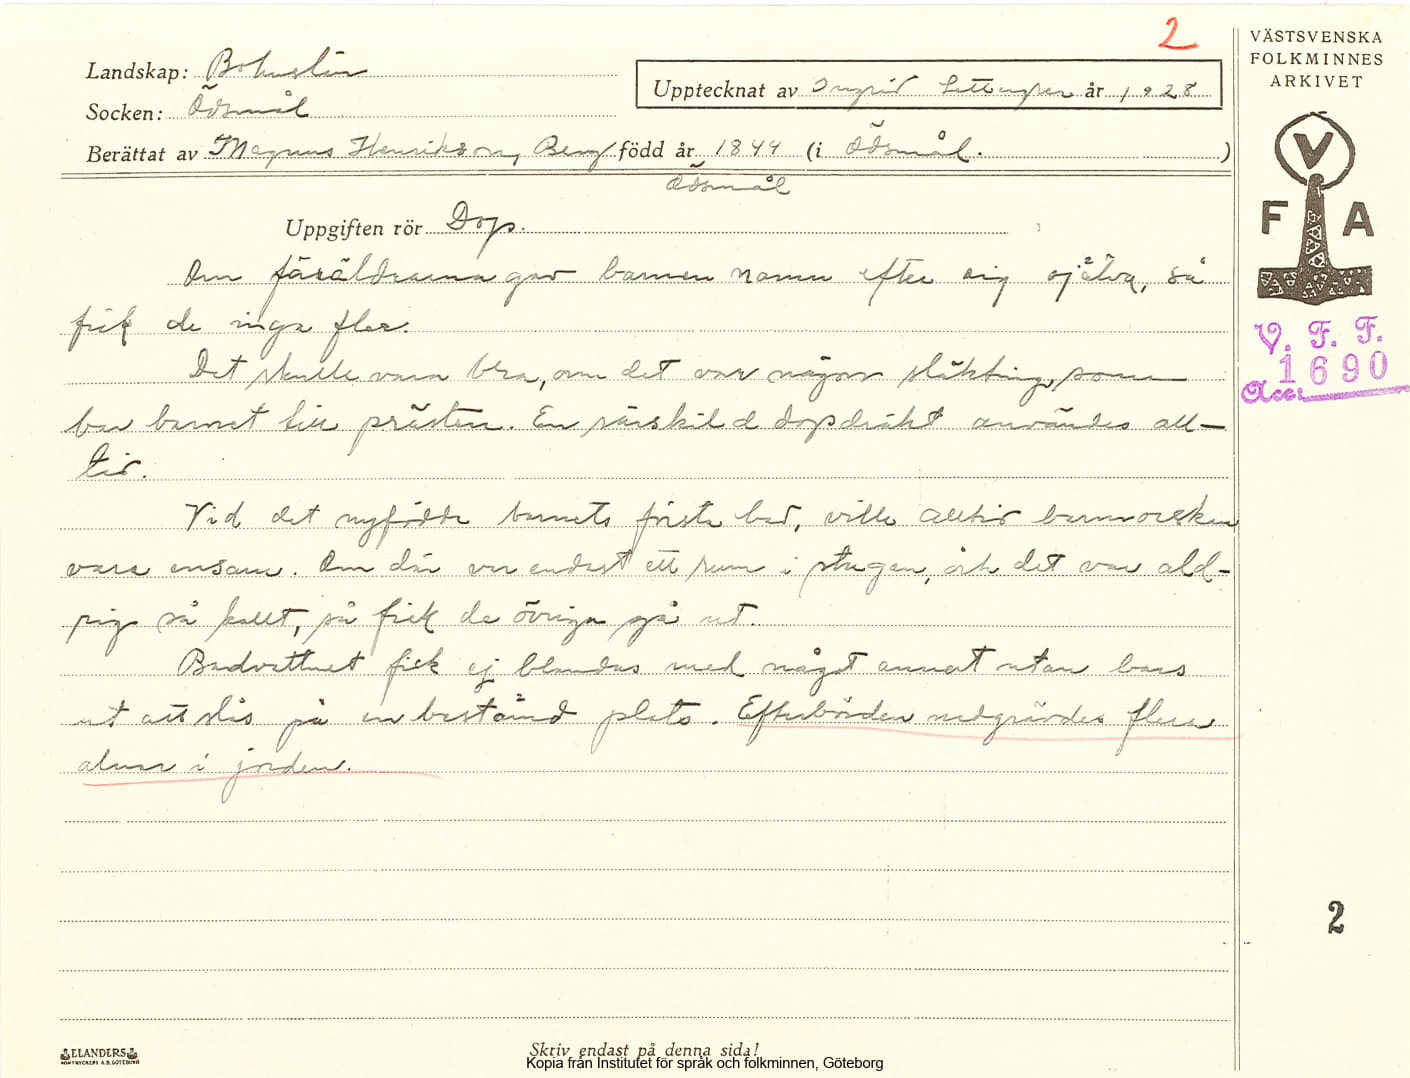 2
VÄSTSVENSKA
FOLKMINNES
ARKIVET
Landskap: Bohuslän
Upptecknat av Ingrid år 1928
Socken: Ödsmål
Berättat av Magnus Henrikson, Berg född år 1844 (i Ödsmål. )
Ödsmål
V
F A
Uppgiften rör Dop.
Om föräldrarna gav barnen namn efter sig själva, så
fick de inga fler.
V. F. F.
1690
Acc:
Det skulle vara bra, om det var någon släkting, som
bar barnet till prästen. En särskild dopdräkt användes all-
tid.
Vid det nyfödda barnets första bad, ville alltid barnmorskan
vara ensam. Om där var endast ett rum i stugan, och det var ald-
rig så kallt, så fick de övriga gå ut.
Badvattnet fick ej blandas med något annat utan bars
ut att slås på en bestämd plats. Efterbörden nedgrävdes flera
alnar i jorden.
2
ELANDERS
BOKTRYCKERI A.B. GÖTEBORG
Skriv endast på denna sida!
Kopia från Institutet för språk och folkminnen, Göteborg